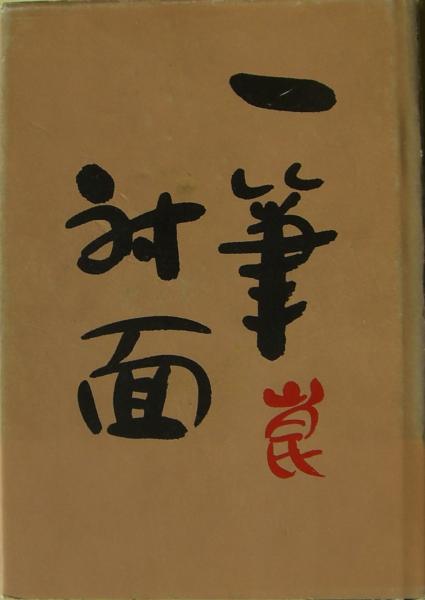 一筆
対面